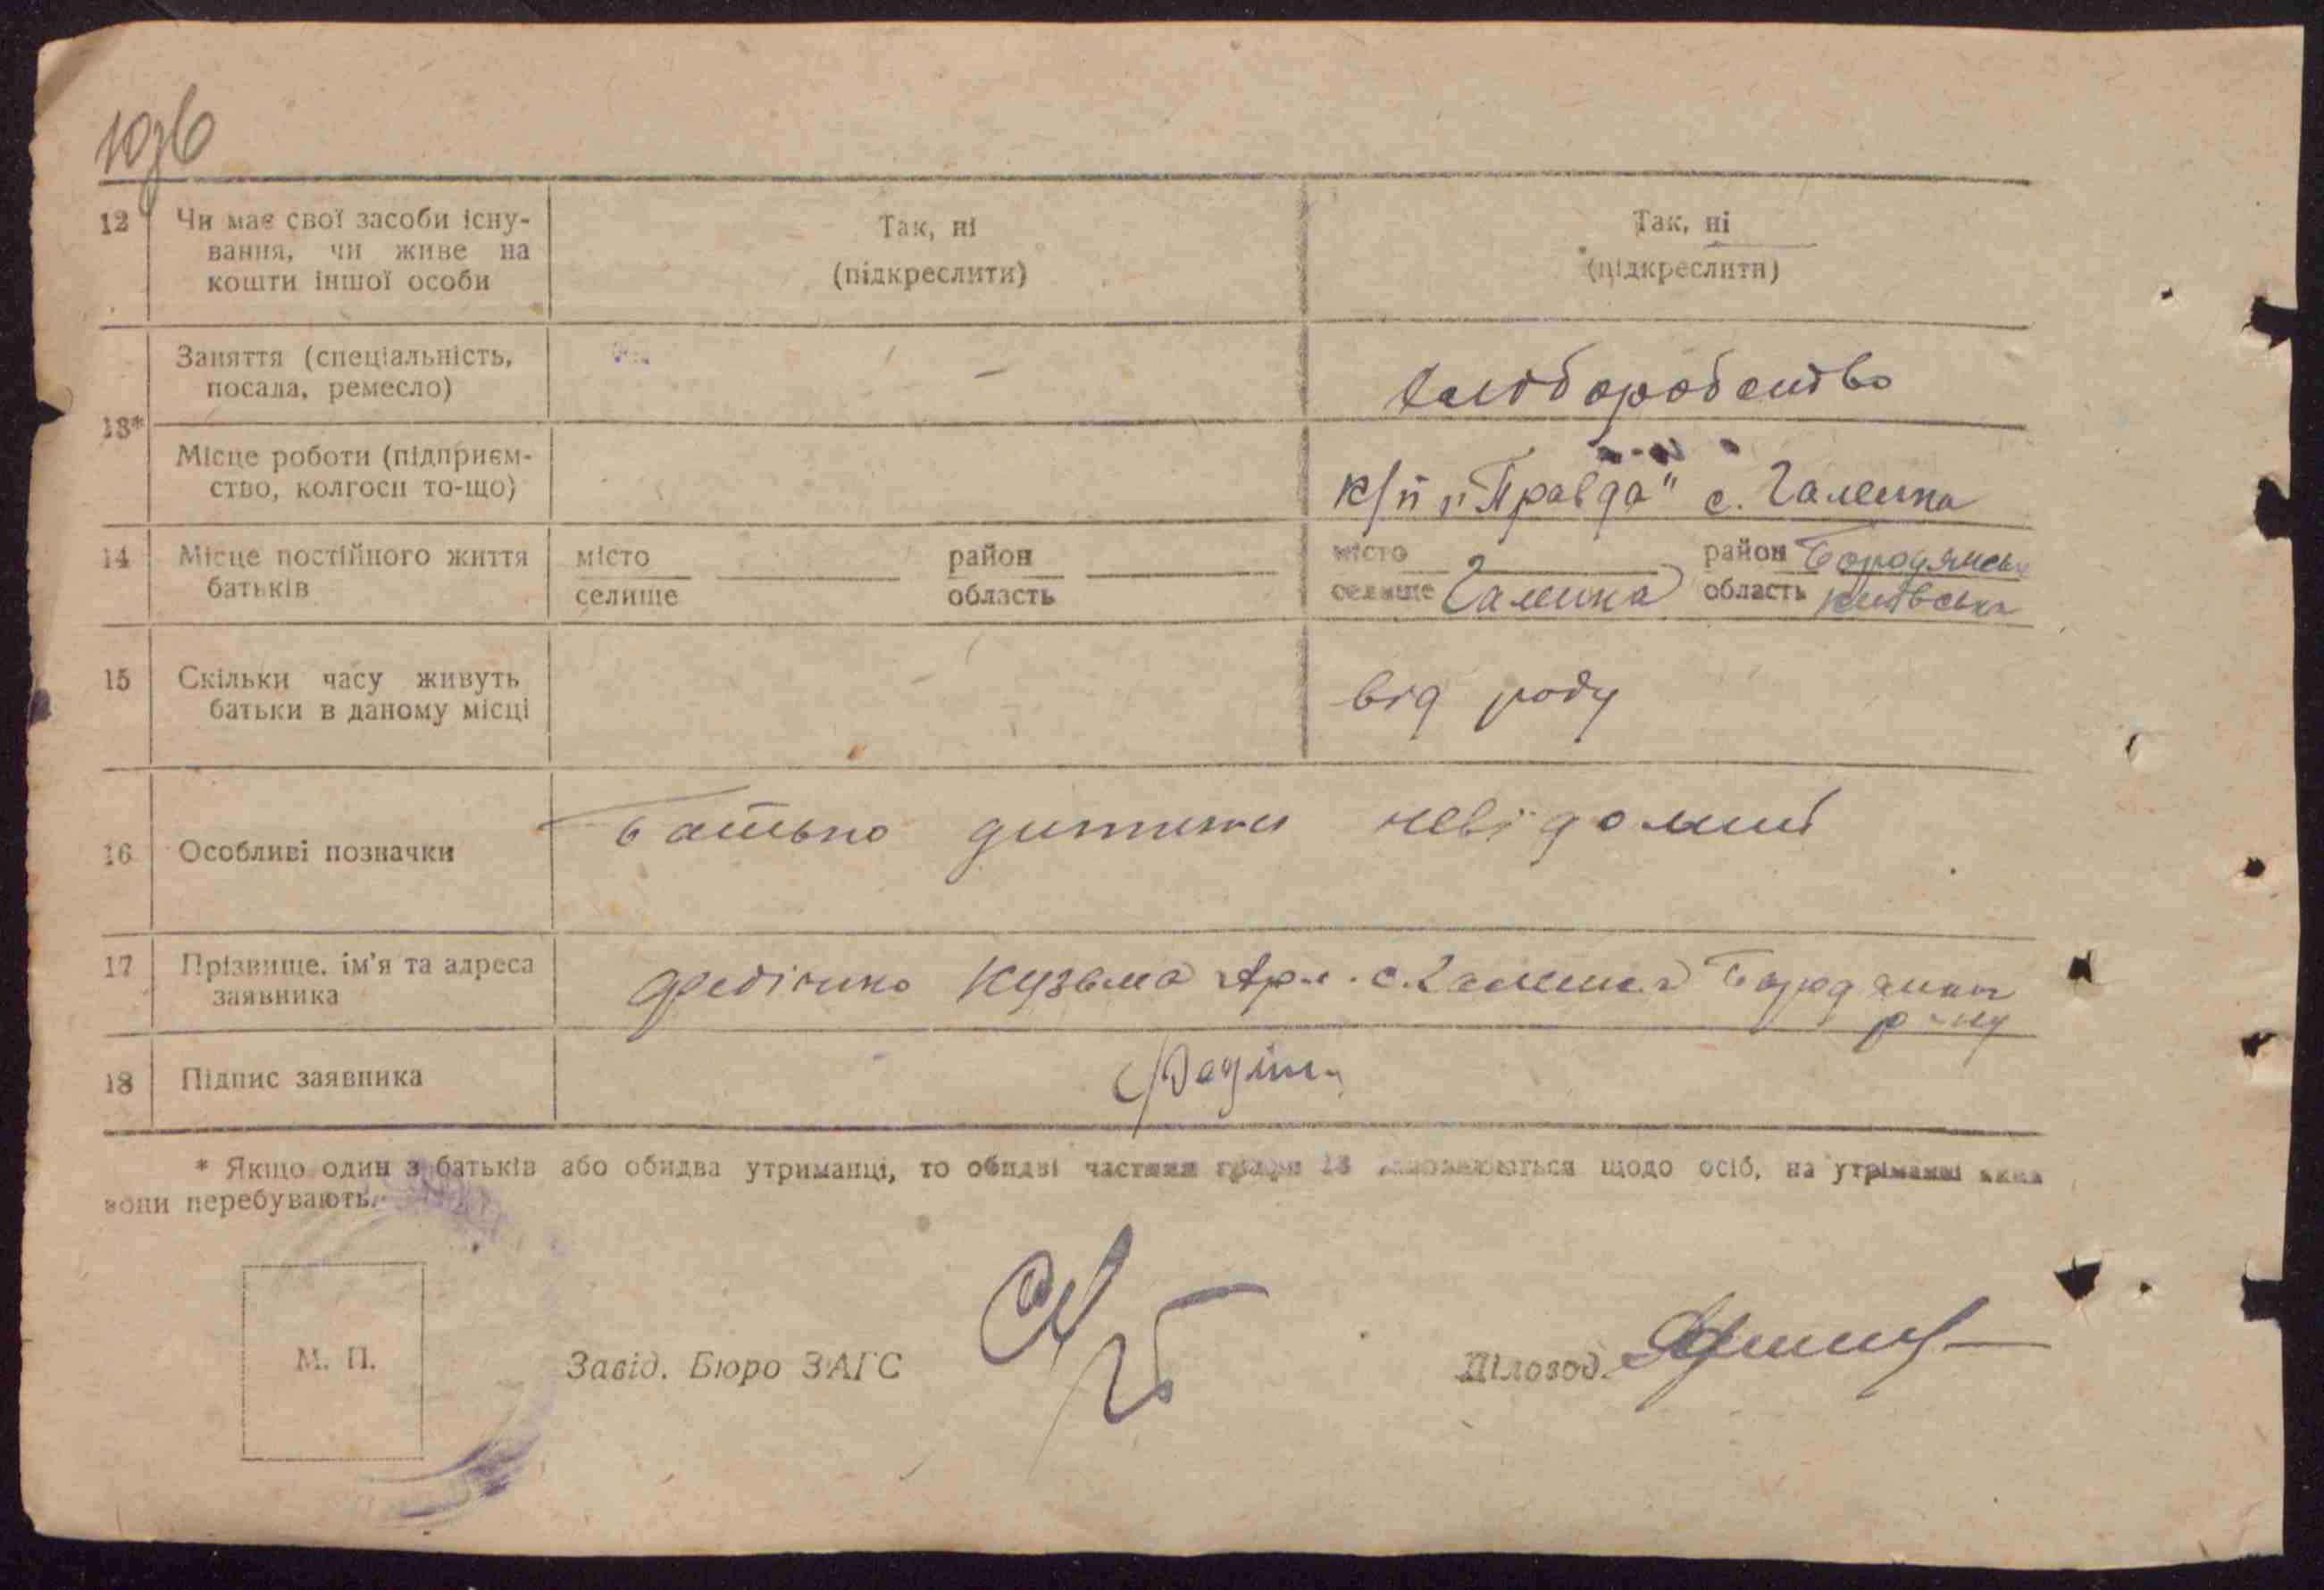 12 Чи має свої засоби існу-
вання, чи живе на
кошти іншої особи
Так, ні
(підкреслити)
Так, ні
(підкреслити)
13*
Заняття (спеціальність,
посада, ремесло)
—
хліборобство
Місце роботи (підприєм-
ство, колгосп то-що)
к/п „Правда" с. Галинка
14 Місце постійного життя
батьків
місто
селище
район
область
місто
селище Галинка
район Бородянськ
область Київська
15 Скільки часу живуть
батьки в даному місці
від роду
16 Особливі позначки
Батько дитини невідомий
17 Прізвище, ім'я та адреса
заявника
Кузьма с. Галинка Бородянськ
р-ну
18 Підпис заявника
* Якщо один з батьків або обидва утриманці, то обидві частини графи 13 заповнюються щодо осіб, на утриманні яких
вони перебувають.
М. П.
Завід. Бюро ЗАГС
Діловод.